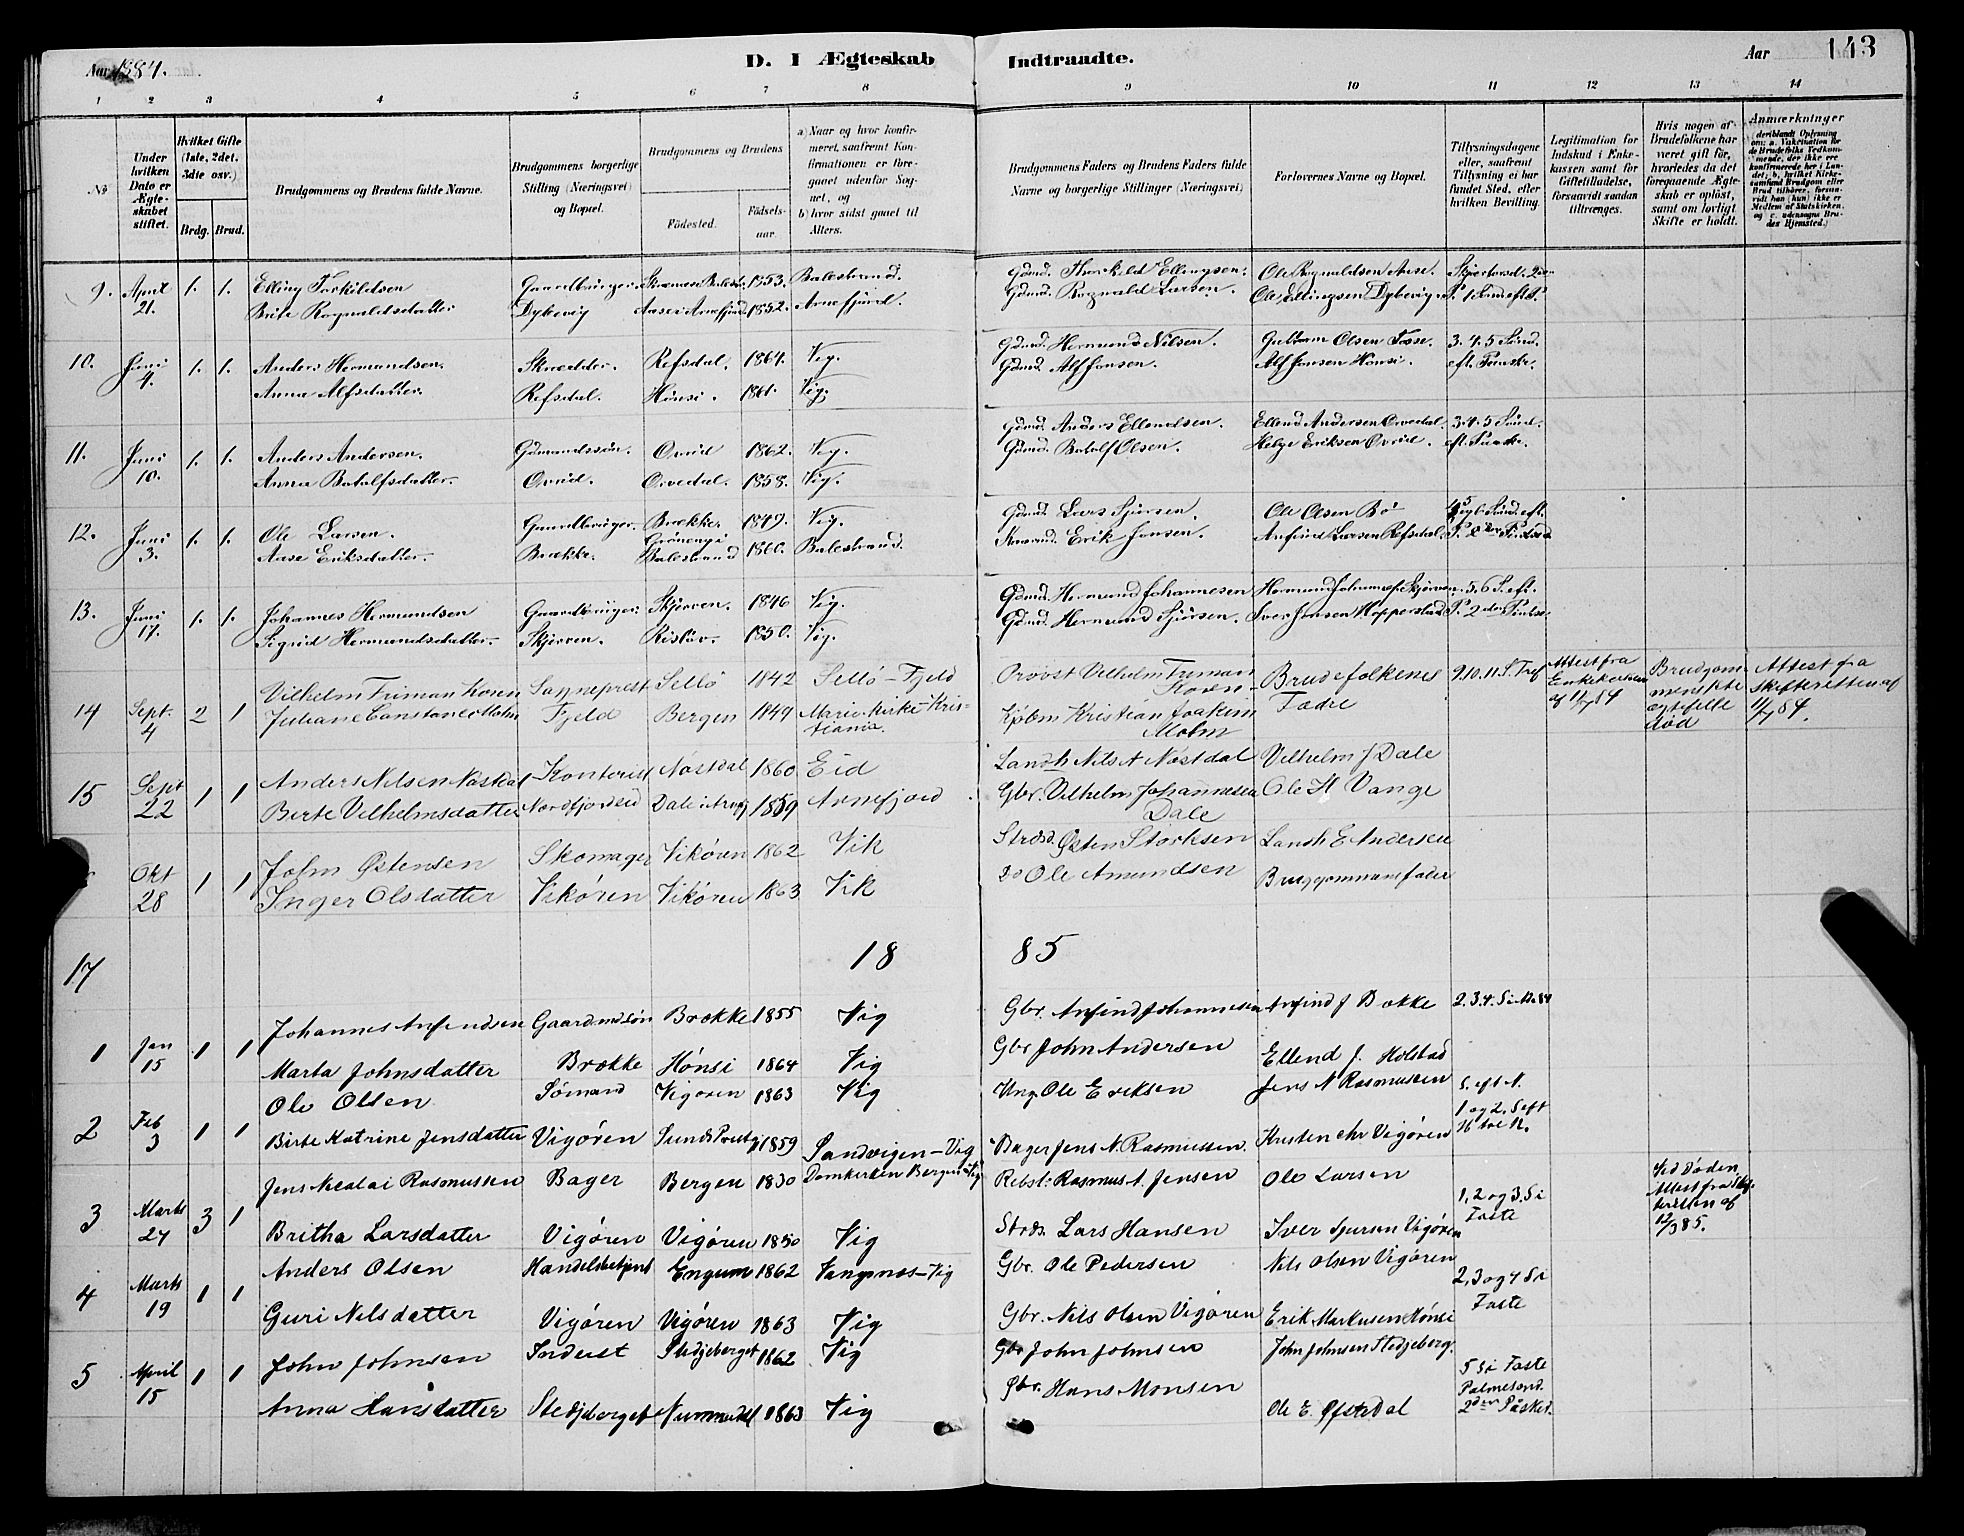 Aar 1884.
D. I Ægteskab Indtraadte.
Aar 143
1 2 3 4 5 6 7 8 9 10 11 12 13 14
No
Under hvilken Dato er Ægteskabet stiftet.
Hvilket Gifte (1ste, 2det, 3die osv.)
Brdg. Brud.
Brudgommens og Brudens fulde Navne.
Brudgommens borgerlige Stilling (Næringsvei) og Bopæl.
Brudgommens og Brudens
Fødested. Fødselsaar.
a) Naar og hvor konfirmeret, saafremt Konfirmationen er foregaaet udenfor Sognet, og
b) hvor sidst gaaet til Alters.
Brudgommens Faders og Brudens Faders fulde Navne og borgerlige Stillinger (Næringsvei)
Forlovernes Navne og Bopæl.
Tillysningsdagene eller, saafremt Tillysning ei har fundet Sted, efter hvilken Bevilling.
Legitimation for Indskud i Enkekassen samt for Giftetilladelse, forsaavidt saadan tiltrænges.
Hvis nogen af Brudefolkene har været gift før, hvorledes da det foregaaende Ægteskab er opløst, samt om lovligt Skifte er holdt.
Anmærkninger
9. April 21. 1. 1. Elling Torkildsen Gaardbruger 1853. Balestrand. Gdmd. Thorkild Ellingsen. Ole Ragnvaldsen Aase.
Brite Ragnaldsdatter Dybevig 1852. Arnefjord. Gdmd. Ragnald Larsen. Ole Ellingsen Dybevig
10. Juni 4. 1. 1. Anders Hermundsen. Skrædder. Refsdal. 1864. Vig. Gdmd. Hermund Nilsen. Olsen Tosse. 3. 4. 5 Sønd.
Anna Alfsdatter. Refsdal. Hønsi. 1861. Vig. Gdmd. Alf Jonsen. Alf Jonsen Hønsi. eft. Paaske.
11. Juni 10. 1. 1. Anders Andersen. Gdmandssøn. Ovrid 1862. Vig. Gdmd. Anders Ellendsen. Ellend Andersen Orvedal. 3. 4. 5 Sønd.
Anna Botolfsdatter. Ovrid. Orvedal. 1858. Vig. Gdmd. Botolf Olsen. Helge Eriksen Ovrid. eft. Paaske.
12. Juni 3. 1. 1. Ole Larsen. Gaardbruger. Brække. 1849. Vig. Gdmd. Lars Sjursen. Ole Olsen Bø
Aase Eriksdatter. Brække. Balestrand 1860. Balestrand. Erik Jonsen. Anfind Larsen Refsdal.
13. Juni 17. 1. 1. Johannes Hermundsen Gaardbruger Skjørven. 1846 Vig. Gdmd. Hermund Johannesen Skjørven. 5. 6 S. eft.
Sigrid Hermundsdatter. Skjørven. Risløv. 1850. Vig. Gdmd. Hermund Sjursen. Iver Jonsen Hopperstad
14 Sept. 4 2 1 Vilhelm Friman Koren Sogneprest Sellø 1842 Sellø - Fjeld Provst Vilhelm Friman Koren Brudefolkenes 9. 10. 11. S. Tref Attest fra Enkekassen af 11/7 84 Brudgommens 1ste ægtefelle død Attest fra Skifteretten af 11/7 84.
Juliane Constance Mohn Fjeld Bergen 1849 Marie Kirke - Kristiania. Kjøbm Kristian Joakim Mohn Fædre
15 Sept 22 1 1 Anders Nilsen Nøstdal Kontorist Nøstdal 1860 Eid Landh Nils A Nøstdal Vilhelm J Dale
Berte Vilhelmsdatter Nordfjordeid Dale i Arnefj 1859 Arnefjord Gbr. Vilhelm Johannesen Dale Ole H Vange
Okt 28 1 1 John Østensen Skomager Vikøren 1862 Vik Strdsd. Østen Storksen Landh E Andersen
Inger Olsdatter Vikøren Vikøren 1863 Vik do Ole Amundsen Brudgommens fader
17
18 85
1 Jan 15 1 1 Johannes Anfindsen Gaardmdsøn Brække 1855 Vig Gbr. Anfind Johannesen Anfind J Brække 2. 3. 4. Si Ad. 84
Marta Johnsdatter Brække Hønsi 1864 Vig Gbr John Andersen Ellend J. Holstad
2 Feb 3 1 1 Ole Olsen Sømand Vigøren 1863 Vig Ung. Ole Eriksen Jens N Rasmussen S. eft N.
Birte Katrine Jensdatter Vigøren Sunds Prestg 1859 Sandvigen - Vig Bager Jens N. Rasmussen. Kristen Vigøren 1 og 2. S eft
3 Marts 24 3 1 Jens Nicolai Rasmussen Bager Bergen 1830 Domkirken Bergen Vig Rebsl: Rasmus A. Jensen Ole Larsen 1, 2 og 3. Si Faste Ved Døden Attest fra Skifteretten af 12/3 85.
Britha Larsdatter Vigøren Vigøren 1850 Vig Strds. Lars Hansen Iver Sjursen Vigøren
4 Marts 19 1 1 Anders Olsen Handelsbetjent Engum 1862 Vangsnes - Vig Gbr. Ole Pedersen Nils Olsen Vigøren 2, 3 og 4 Si Faste
Guri Nilsdatter Vigøren Vigøren 1863 Vig Gbr. Nils Olsen Vigøren Erik Markusen Hønsi
5 April 15 1 1 John Johnsen Inderst Stedjeberget 1862 Vig Gbr John Johnsen John Johnsen Stedjeberg. 5 Si Faste Palmesønd. 2den Påsked.
Anna Hansdatter Stedjeberget Nummedal 1863 Vig Gbr. Hans Monsen Ole E. Ofstedal